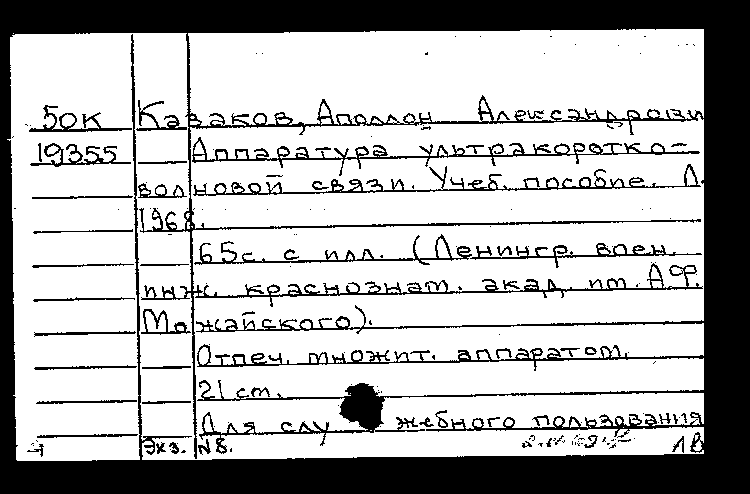 50К Казаков, Аполлон Александрови
19355 Аппаратура ультракоротко-
волновой связи. Учеб. пособие. Л.
1968.
65с. с илл. (Ленингр. воен.
инж. краснознам. акад. им. А.Ф.
Можайского).
Отпеч. множит. аппаратом.
21 см.
Для служебного пользования
Экз. №8. ЛВ